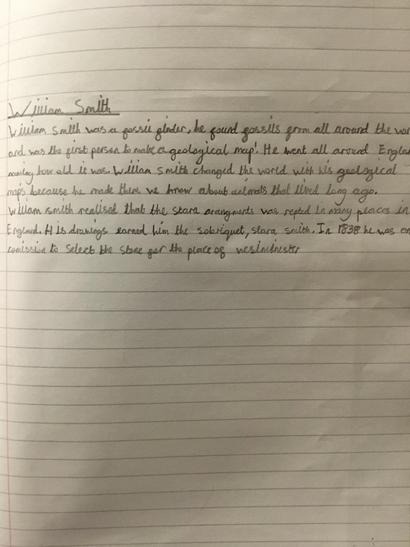 William Smith
William Smith was a fossil finder, he found fossils from all around the
and was the first person to make a geological map! He went all around
how old it was. William Smith changed the world with his geological
maps, because he made them we know about animals that lived long ago.
William smith realised that the stara arangments was repted in many places in
England. His drawings earned him the sobriquet, stara smith. In 1838 he was
comission to select the stone for the place of westminester